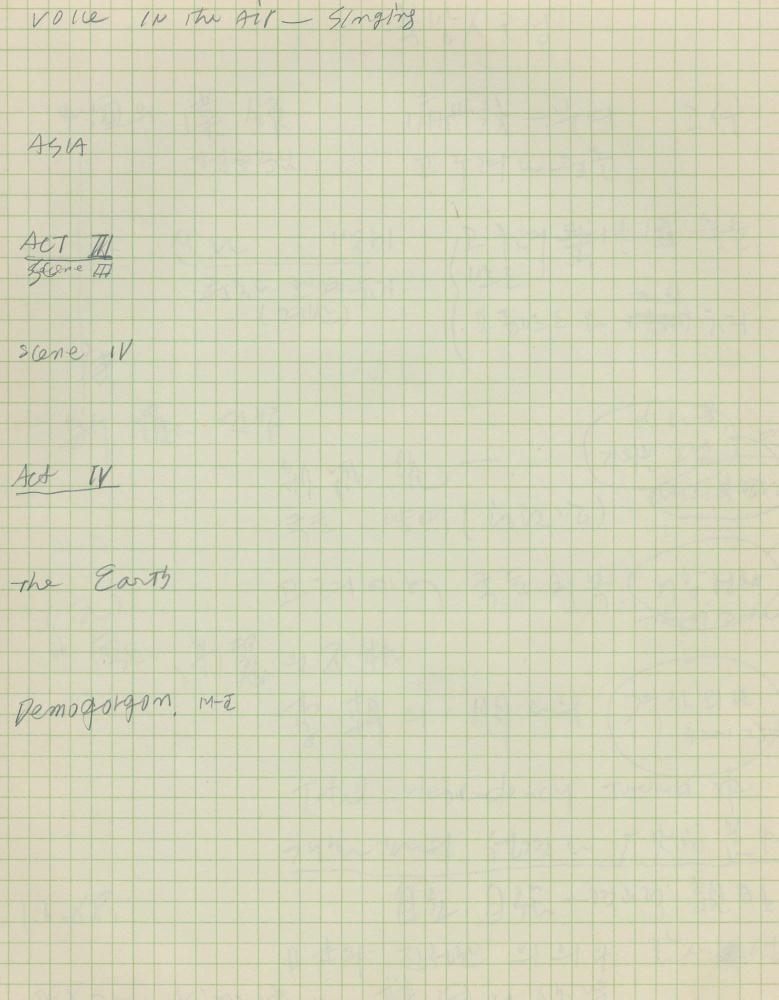 VOICE IN the Air — Singing
ASIA
ACT III
Scene III
scene IV
Act IV
the Earth
Demogorgon.